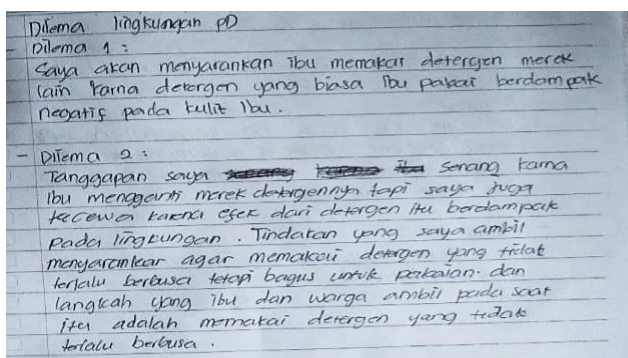 Dilema lingkungan PD
- Dilema 1 :
Saya akan menyarankan ibu memakai detergen merek
lain karna detergen yang biasa ibu pakai berdampak
negatif pada kulit ibu.
- Dilema 2 :
Tanggapan saya senang karna
ibu mengganti merek detergennya tapi saya juga
kecewa karna efek dari detergen itu berdampak
pada lingkungan. Tindakan yang saya ambil
menyarankan agar memakai detergen yang tidak
terlalu berbusa tetapi bagus untuk pakaian. dan
langkah yang ibu dan warga ambil pada saat
itu adalah memakai detergen yang tidak
terlalu berbusa.